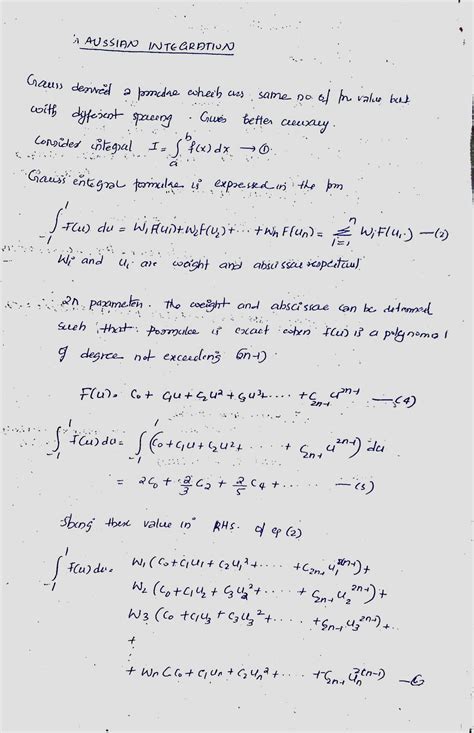 AUSSIAN INTEGRATION
Gauss derived a formulae which uses same no of fn value but
with different spacing. Gives better accuracy.
Consider integral I = ∫_a^b f(x) dx → ①
Gauss integral formulae is expressed in the fm
∫_{-1}^{1} F(u) du = W₁F(u₁)+W₂F(u₂)+ ... +Wn F(un) = Σ_{i=1}^{n} Wi F(ui) —(2)
Wi and ui are weight and abscissae respectively
2n parameters. The weight and abscissae can be determined
such that formulae is exact when F(u) is a polynomial
of degree not exceeding (2n-1)
F(u) = C₀ + C₁u + C₂u² + C₃u³+ ..... + C_{2n-1} u^{2n-1} —(4)
∫_{-1}^{1} F(u) du = ∫_{-1}^{1} (C₀+C₁u+C₂u²+ ..... + C_{2n-1} u^{2n-1}) du
= 2C₀ + 2/3 C₂ + 2/5 C₄ + ..... —(5)
these value in RHS. of eq (2)
∫_{-1}^{1} F(u) du = W₁ (C₀+C₁u₁+C₂u₁²+ ..... +C_{2n-1} u₁^{2n-1})+
W₂ (C₀+C₁u₂+C₃u₂²+ ..... + C_{2n-1} u₂^{2n-1})+
W₃ (C₀+C₁u₃+C₃u₃²+ ..... +C_{2n-1} u₃^{2n-1})+..
+
+ Wn (C₀+C₁un+C₂un²+ .... +C_{2n-1} un^{2(n-1)}) —⑥